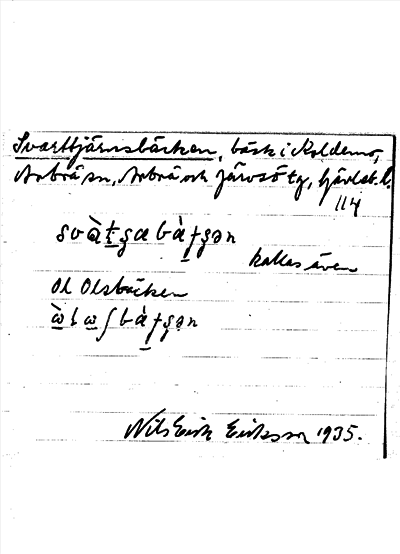 Svarttjärnsbäcken, bäck i Koldemo,
Arbrå sn, Arbrå och Järvsö tg, Gävleb. l.
114
kallas även
Ol Olsbäcken
Nils Erik Eriksson 1935.